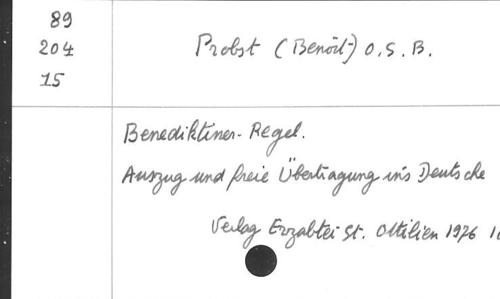 89
204
15
Probst (Benoît) O.S.B.
Benediktiner-Regel.
Auszug und freie Übertragung ins Deutsche
Verlag Erzabtei St. Ottilien 1976